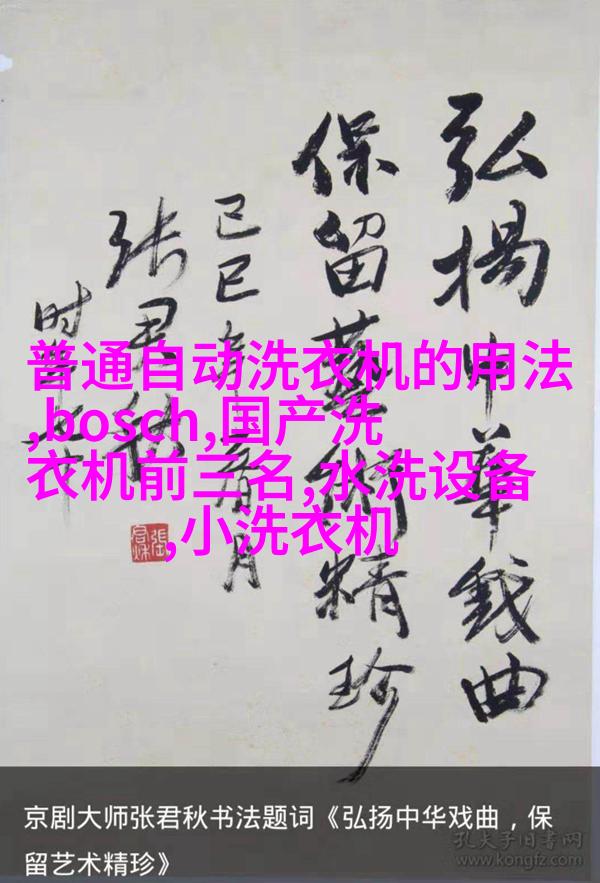 弘揚中華戲曲
保留藝術精珍
己巳年春月
张君秋
时年七十
張君秋
普通自动洗衣机的用法
,bosch,国产洗
衣机前三名,水洗设备
,小洗衣机
京剧大师张君秋书法题词《弘扬中华戏曲，保
留艺术精珍》
孔夫子旧书网
www.kongfz.com